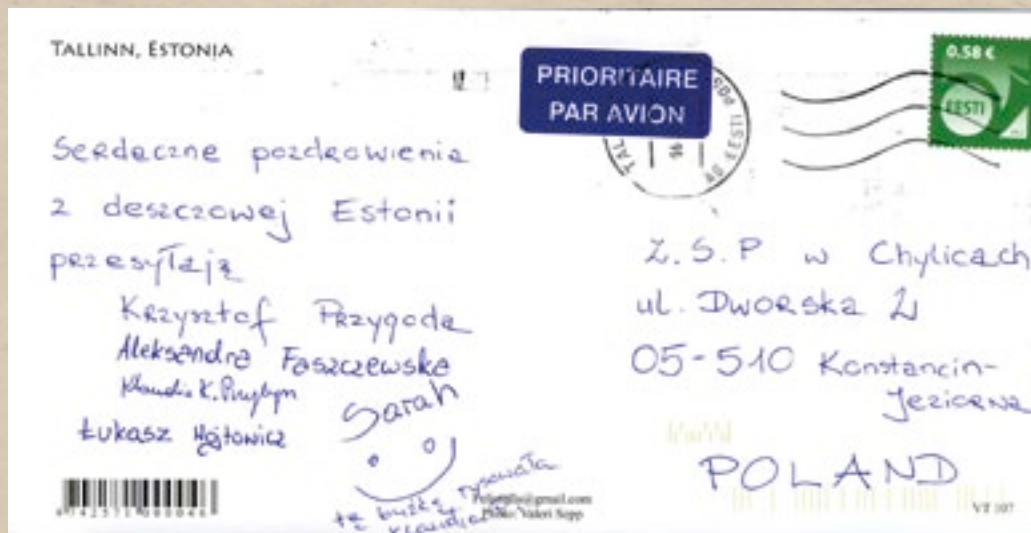 TALLINN, ESTONIA
PRIORITAIRE
PAR AVION
0.58 €
EESTI
Serdeczne pozdrowienia
z deszczowej Estonii
przesyłają
Krzysztof Przygoda
Aleksandra Faszczewska
Klaudia K.
Łukasz Wojtowicz
Sarah
tę buźkę rysowała
Klaudia
Z.S.P w Chylicach
ul. Dworska 2
05-510 Konstancin-
Jeziorna
POLAND
Photo: Valeri Sepp
VT 107